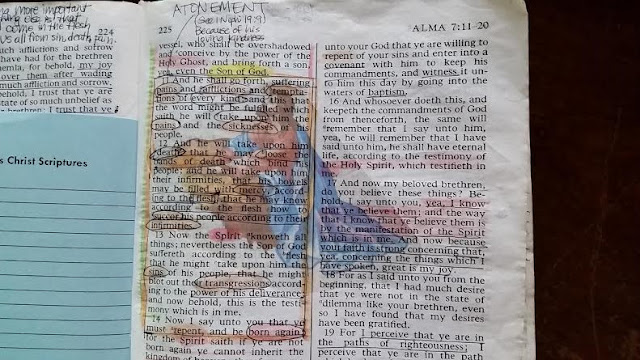 more important
is that
come in the flesh
us all from sin, death, pain.
224
much afflictions and sorrow
have had for the brethren
hemla, for behold, my joy
over them after wading
much affliction and sorrow.
behold, I trust that ye are
state of so much unbelief as
brethren; I trust that ye
s Christ Scriptures
ATONEMENT
Because of his
loving kindness
225
vessel, who shall be overshadowed
and conceive by the power of the
Holy Ghost, and bring forth a son,
yea, even the Son of God.
11 And he shall go forth, suffering
pains and afflictions and tempta-
tions of every kind; and this that
the word might be fulfilled which
saith he will take upon him the
pains and the sicknesses of his
people.
12 And he will take upon him
death, that he may loose the
bands of death which bind his
people; and he will take upon him
their infirmities, that his bowels
may be filled with mercy, accord-
ing to the flesh, that he may know
according to the flesh how to
succor his people according to their
infirmities.
13 Now the Spirit knoweth all
things; nevertheless the Son of God
suffereth according to the flesh
that he might take upon him the
sins of his people, that he might
blot out their transgressions accord-
ing to the power of his deliverance;
and now behold, this is the testi-
mony which is in me.
14 Now I say unto you that ye
must repent, and be born again;
for the Spirit saith if ye are not
born again ye cannot inherit the
ALMA 7:11-20
unto your God that ye are willing to
repent of your sins and enter into a
covenant with him to keep his
commandments, and witness it un-
to him this day by going into the
waters of baptism.
16 And whosoever doeth this, and
keepeth the commandments of God
from thenceforth, the same will
remember that I say unto him,
yea, he will remember that I have
said unto him, he shall have eternal
life, according to the testimony of
the Holy Spirit, which testifieth in
me.
17 And now my beloved brethren,
do you believe these things? Be-
hold, I say unto you, yea, I know
that ye believe them; and the way
that I know that ye believe them is
by the manifestation of the Spirit
which is in me. And now because
your faith is strong concerning that,
yea, concerning the things which I
have spoken, great is my joy.
18 For as I said unto you from the
beginning, that I had much desire
that ye were not in the state of
dilemma like your brethren, even
so I have found that my desires
have been gratified.
19 For I perceive that ye are in
the paths of righteousness; I
perceive that ye are in the path